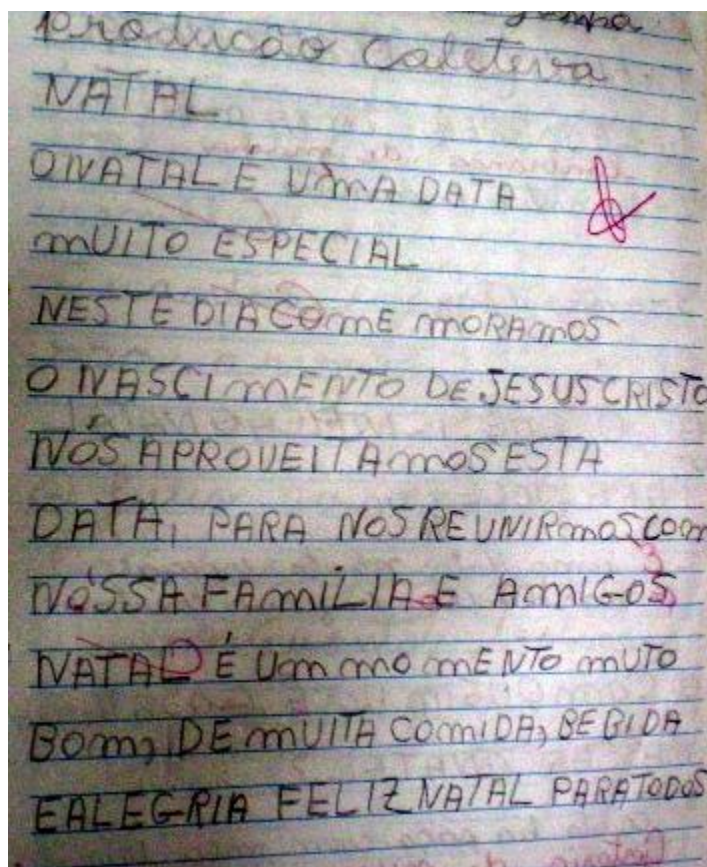 Produção Caletiva
NATAL
O NATAL É UMA DATA
MUITO ESPECIAL
NESTE DIA COME MORAMOS
O NASCIMENTO DE JESUS CRISTO
NÓS APROVEITAMOS ESTA
DATA, PARA NOS REUNIRMOS COM
NOSSA FAMÍLIA E AMIGOS
NATAL É UM MOMENTO MUTO
BOM, DE MUITA COMIDA, BEBIDA
E ALEGRIA FELIZ NATAL PARA TODOS